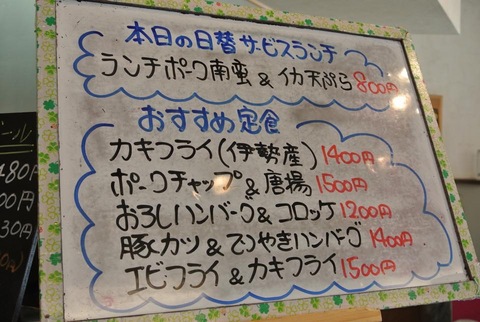 本日の日替サービスランチ
ランチポーク南蛮&イカ天ぷら 800円
おすすめ定食
カキフライ(伊勢産) 1400円
ポークチャップ&唐揚 1500円
おろしハンバーグ&コロッケ 1200円
豚カツ&てりやきハンバーグ 1400円
エビフライ&カキフライ 1500円
ール
480円
00円
30円